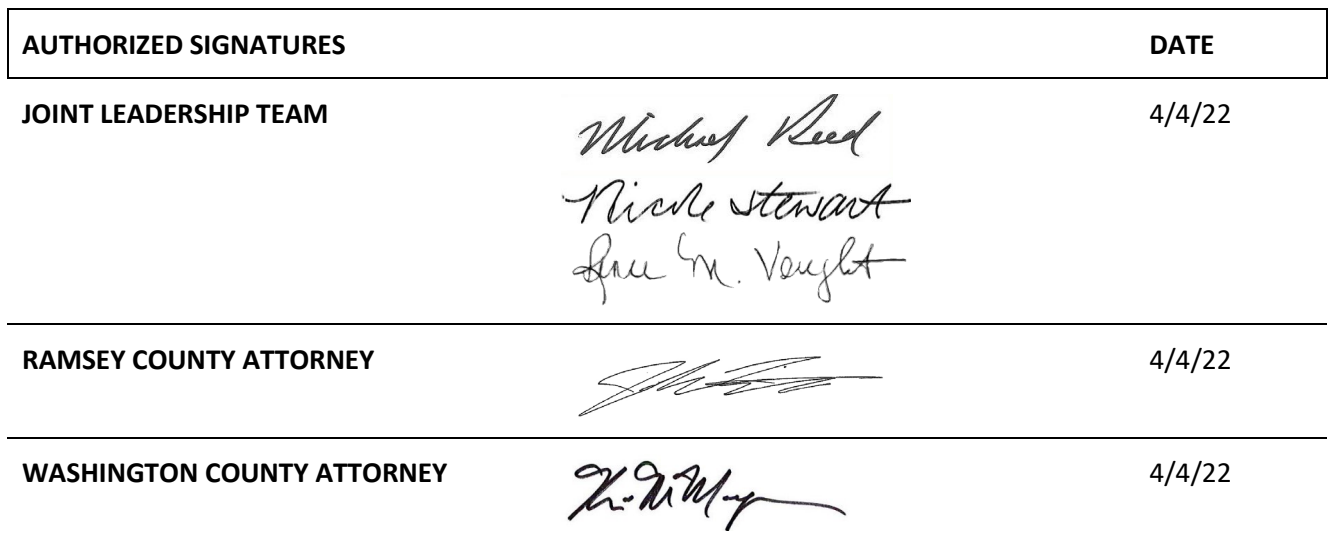 AUTHORIZED SIGNATURES DATE
JOINT LEADERSHIP TEAM Michael Reed 4/4/22
Nicole Stewart
M. Vought
RAMSEY COUNTY ATTORNEY 4/4/22
WASHINGTON COUNTY ATTORNEY 4/4/22